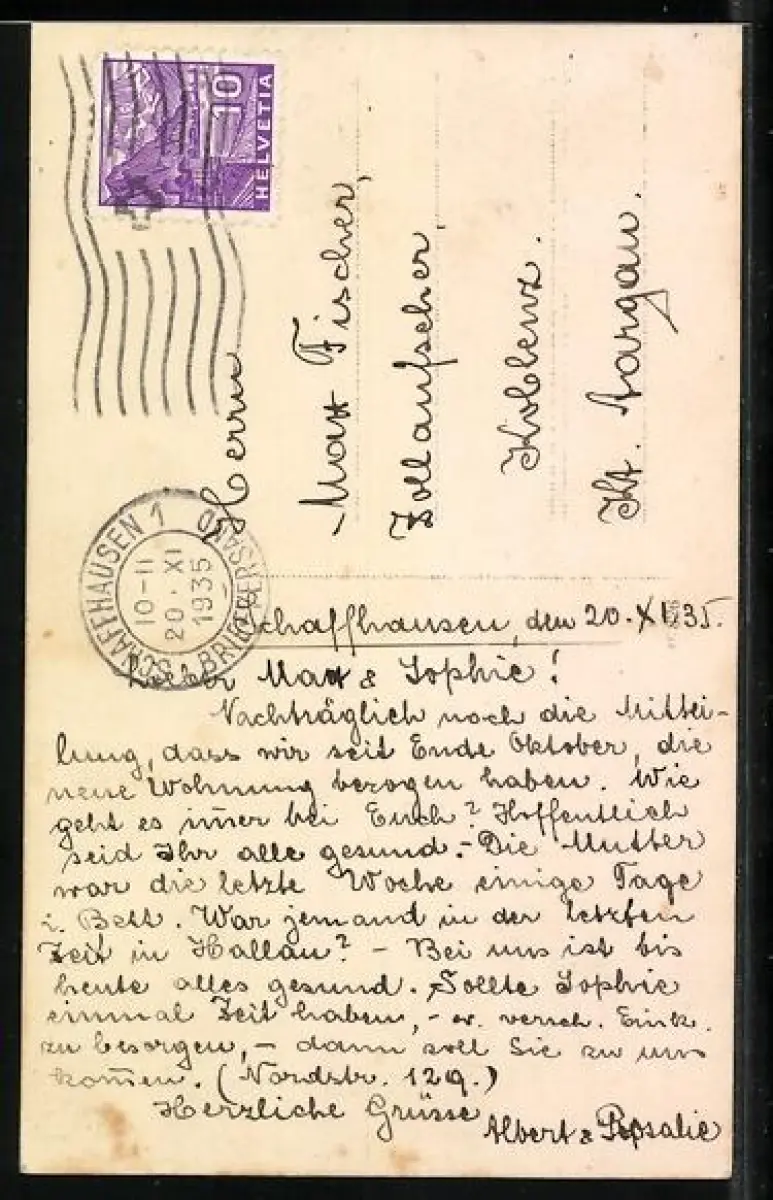 10
HELVETIA
SCHAFFHAUSEN 1
10-11
20.XI
1935
BRIEFVERSAND
Herrn
Max Fischer,
Zollaufseher,
Koblenz.
Kt. Aargau.
Schaffhausen, den 20.XI.35.
Lieber Max & Sophie!
Nachträglich noch die Mittei-
lung, dass wir seit Ende Oktober, die
neue Wohnung bezogen haben. Wie
geht es im̅er bei Euch? Hoffentlich
seid Ihr alle gesund. - Die Mutter
war die letzte Woche einige Tage
i. Bett. War jemand in der letzten
Zeit in Hallau? - Bei uns ist bis
heute alles gesund. Sollte Sophie
einmal Zeit haben, - ev. versch. Eink.
zu besorgen, - dann soll Sie zu uns
kom̅en. (Nordstr. 129.)
Herzliche Grüsse
Albert & Rosalie